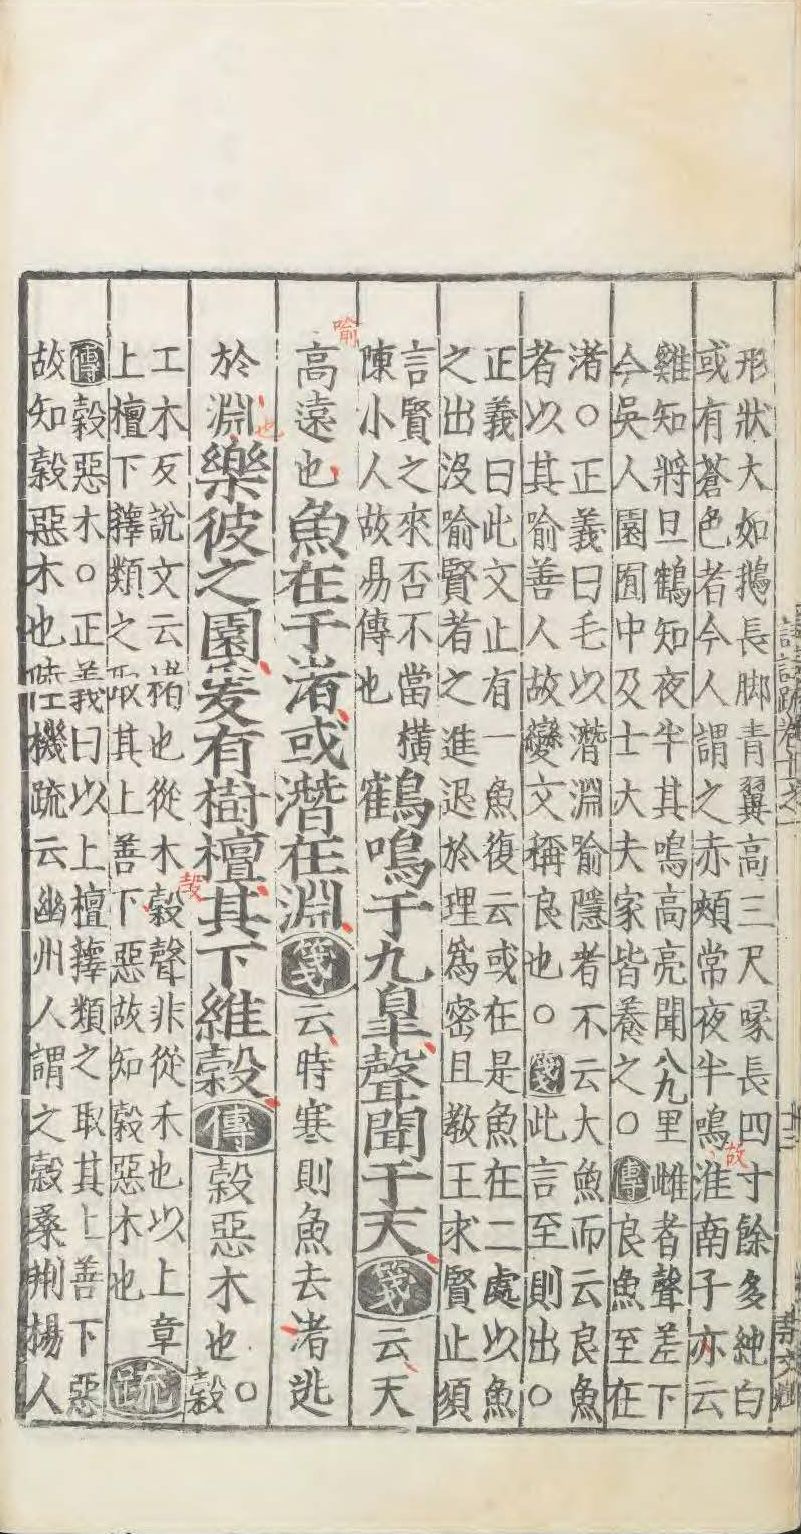 形狀大如鵝長脚青翼高三尺喙長四寸餘多純白
或有蒼色者今人謂之赤頰常夜半鳴淮南子亦云
雞知將旦鶴知夜半其鳴高亮聞八九里雌者聲差下
今吳人園囿中及士大夫家皆養之○傳良魚至在
渚○正義曰毛以潛淵喻隱者不云大魚而云良魚
者以其喻善人故變文稱良也○箋此言至則出○
正義曰此文止有一魚復云或在是魚在二處以魚
之出沒喻賢者之進退於理爲密且敎王求賢止須
言賢之來否不當橫
陳小人故易傳也
鶴鳴于九皐聲聞于天箋云天
高遠也魚在于渚或潛在淵箋云時寒則魚去渚逃
於淵樂彼之園爰有樹檀其下維榖傳榖惡木也○榖
工木反說文云楮也從木㱿聲非從禾也以上章
上檀下蘀類之取其上善下惡故知榖惡木也疏
傳榖惡木○正義曰以上檀蘀類之取其上善下惡
故知榖惡木也陸機疏云幽州人謂之榖桑荆楊人
喻
也
㱿
故